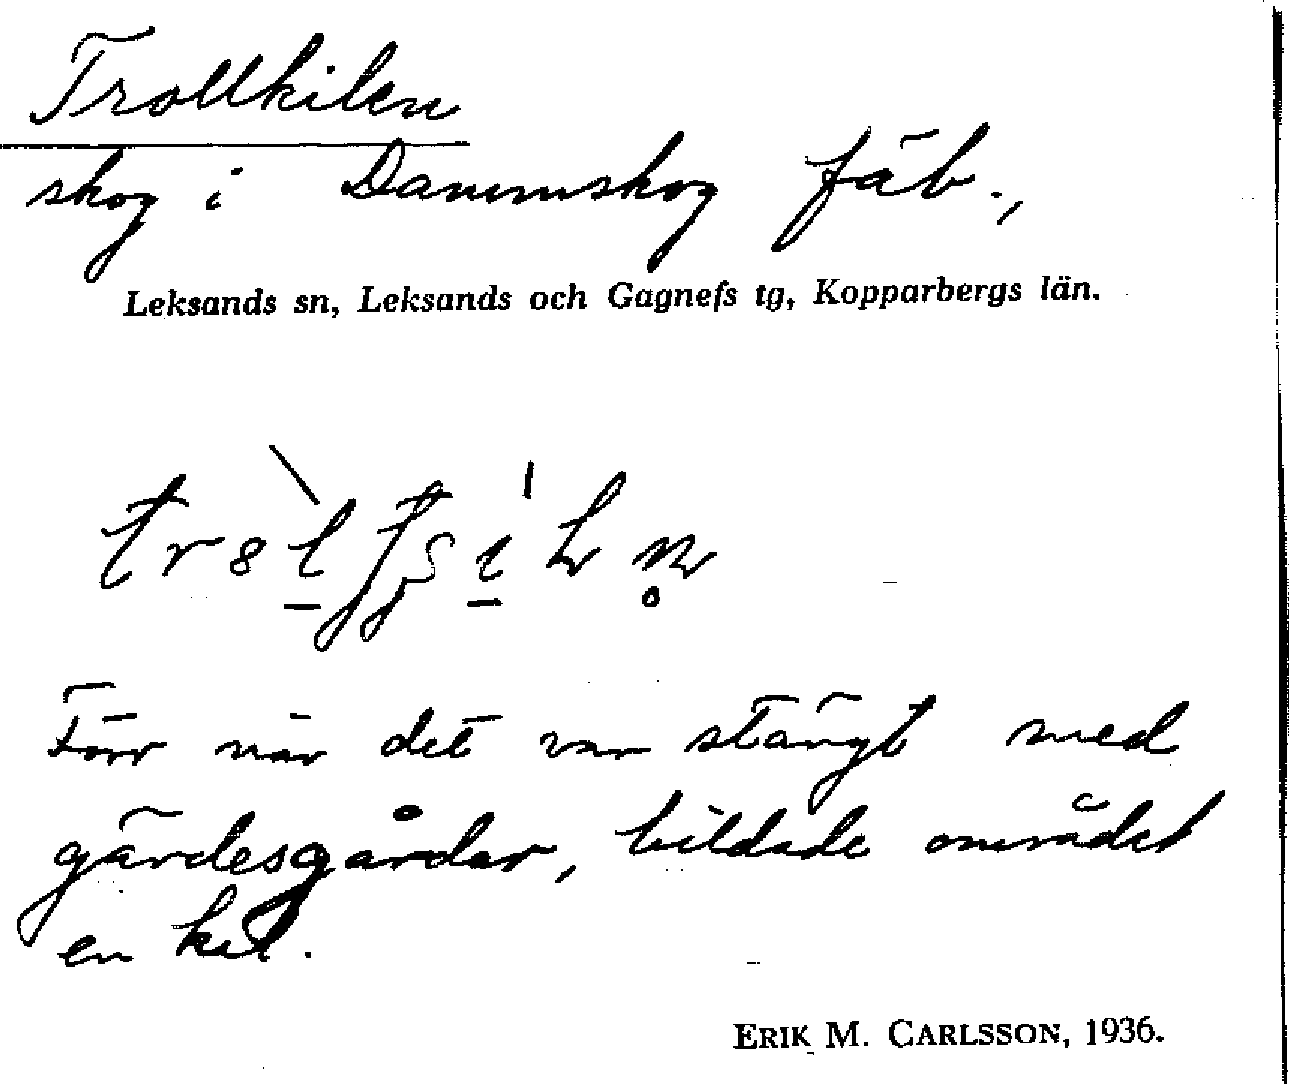 Trollkilen
skog i Dammskog fäb.,
Leksands sn, Leksands och Gagnefs tg, Kopparbergs län.
Förr när det var stängt med
gärdesgårdar, bildade området
en kil.
ERIK M. CARLSSON, 1936.